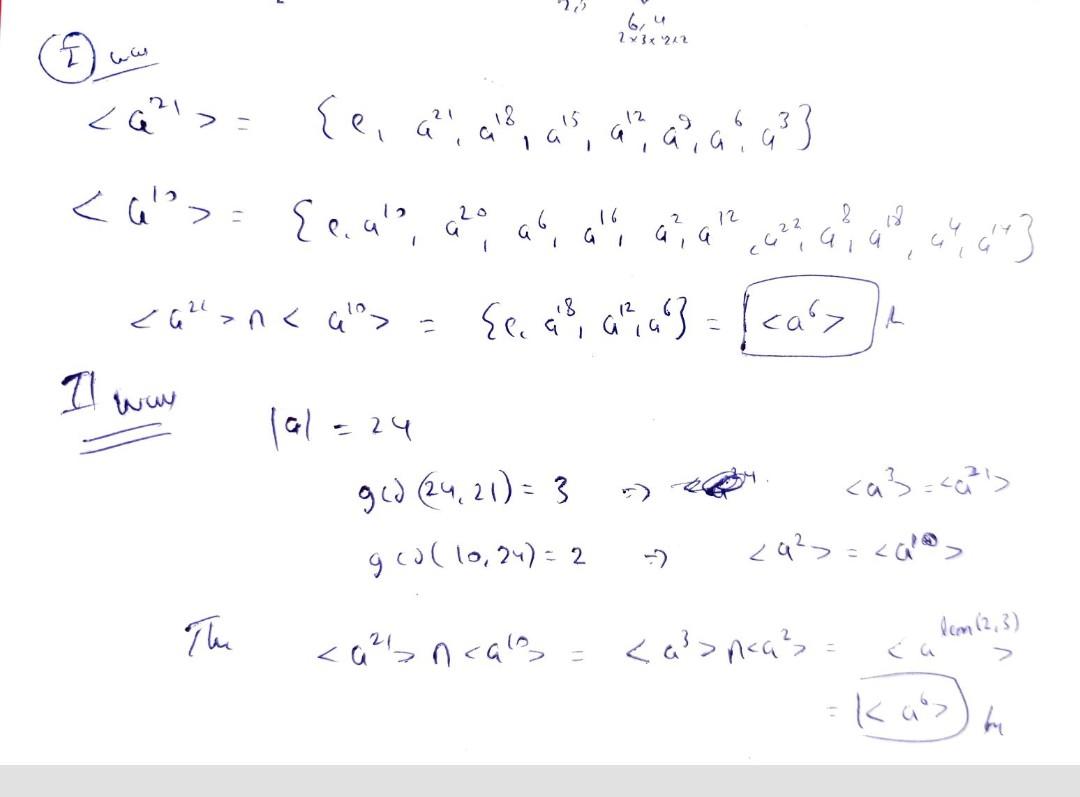 2,3
6, 4
2×3× 2×2
I way
<a²¹> = {e, a²¹, a¹⁸, a¹⁵, a¹², a⁹, a⁶, a³}
<a¹⁰> = {e, a¹⁰, a²⁰, a⁶, a¹⁶, a², a¹², a²², a⁸, a¹⁸, a⁴, a¹⁴}
<a²¹> ∩ <a¹⁰> = {e, a¹⁸, a¹², a⁶} = <a⁶>
II way
|a| = 24
gcd (24, 21) = 3 => <a³> = <a²¹>
gcd (10, 24) = 2 => <a²> = <a¹⁰>
The <a²¹> ∩ <a¹⁰> = <a³> ∩ <a²> = <a^lcm(2,3)>
= <a⁶>